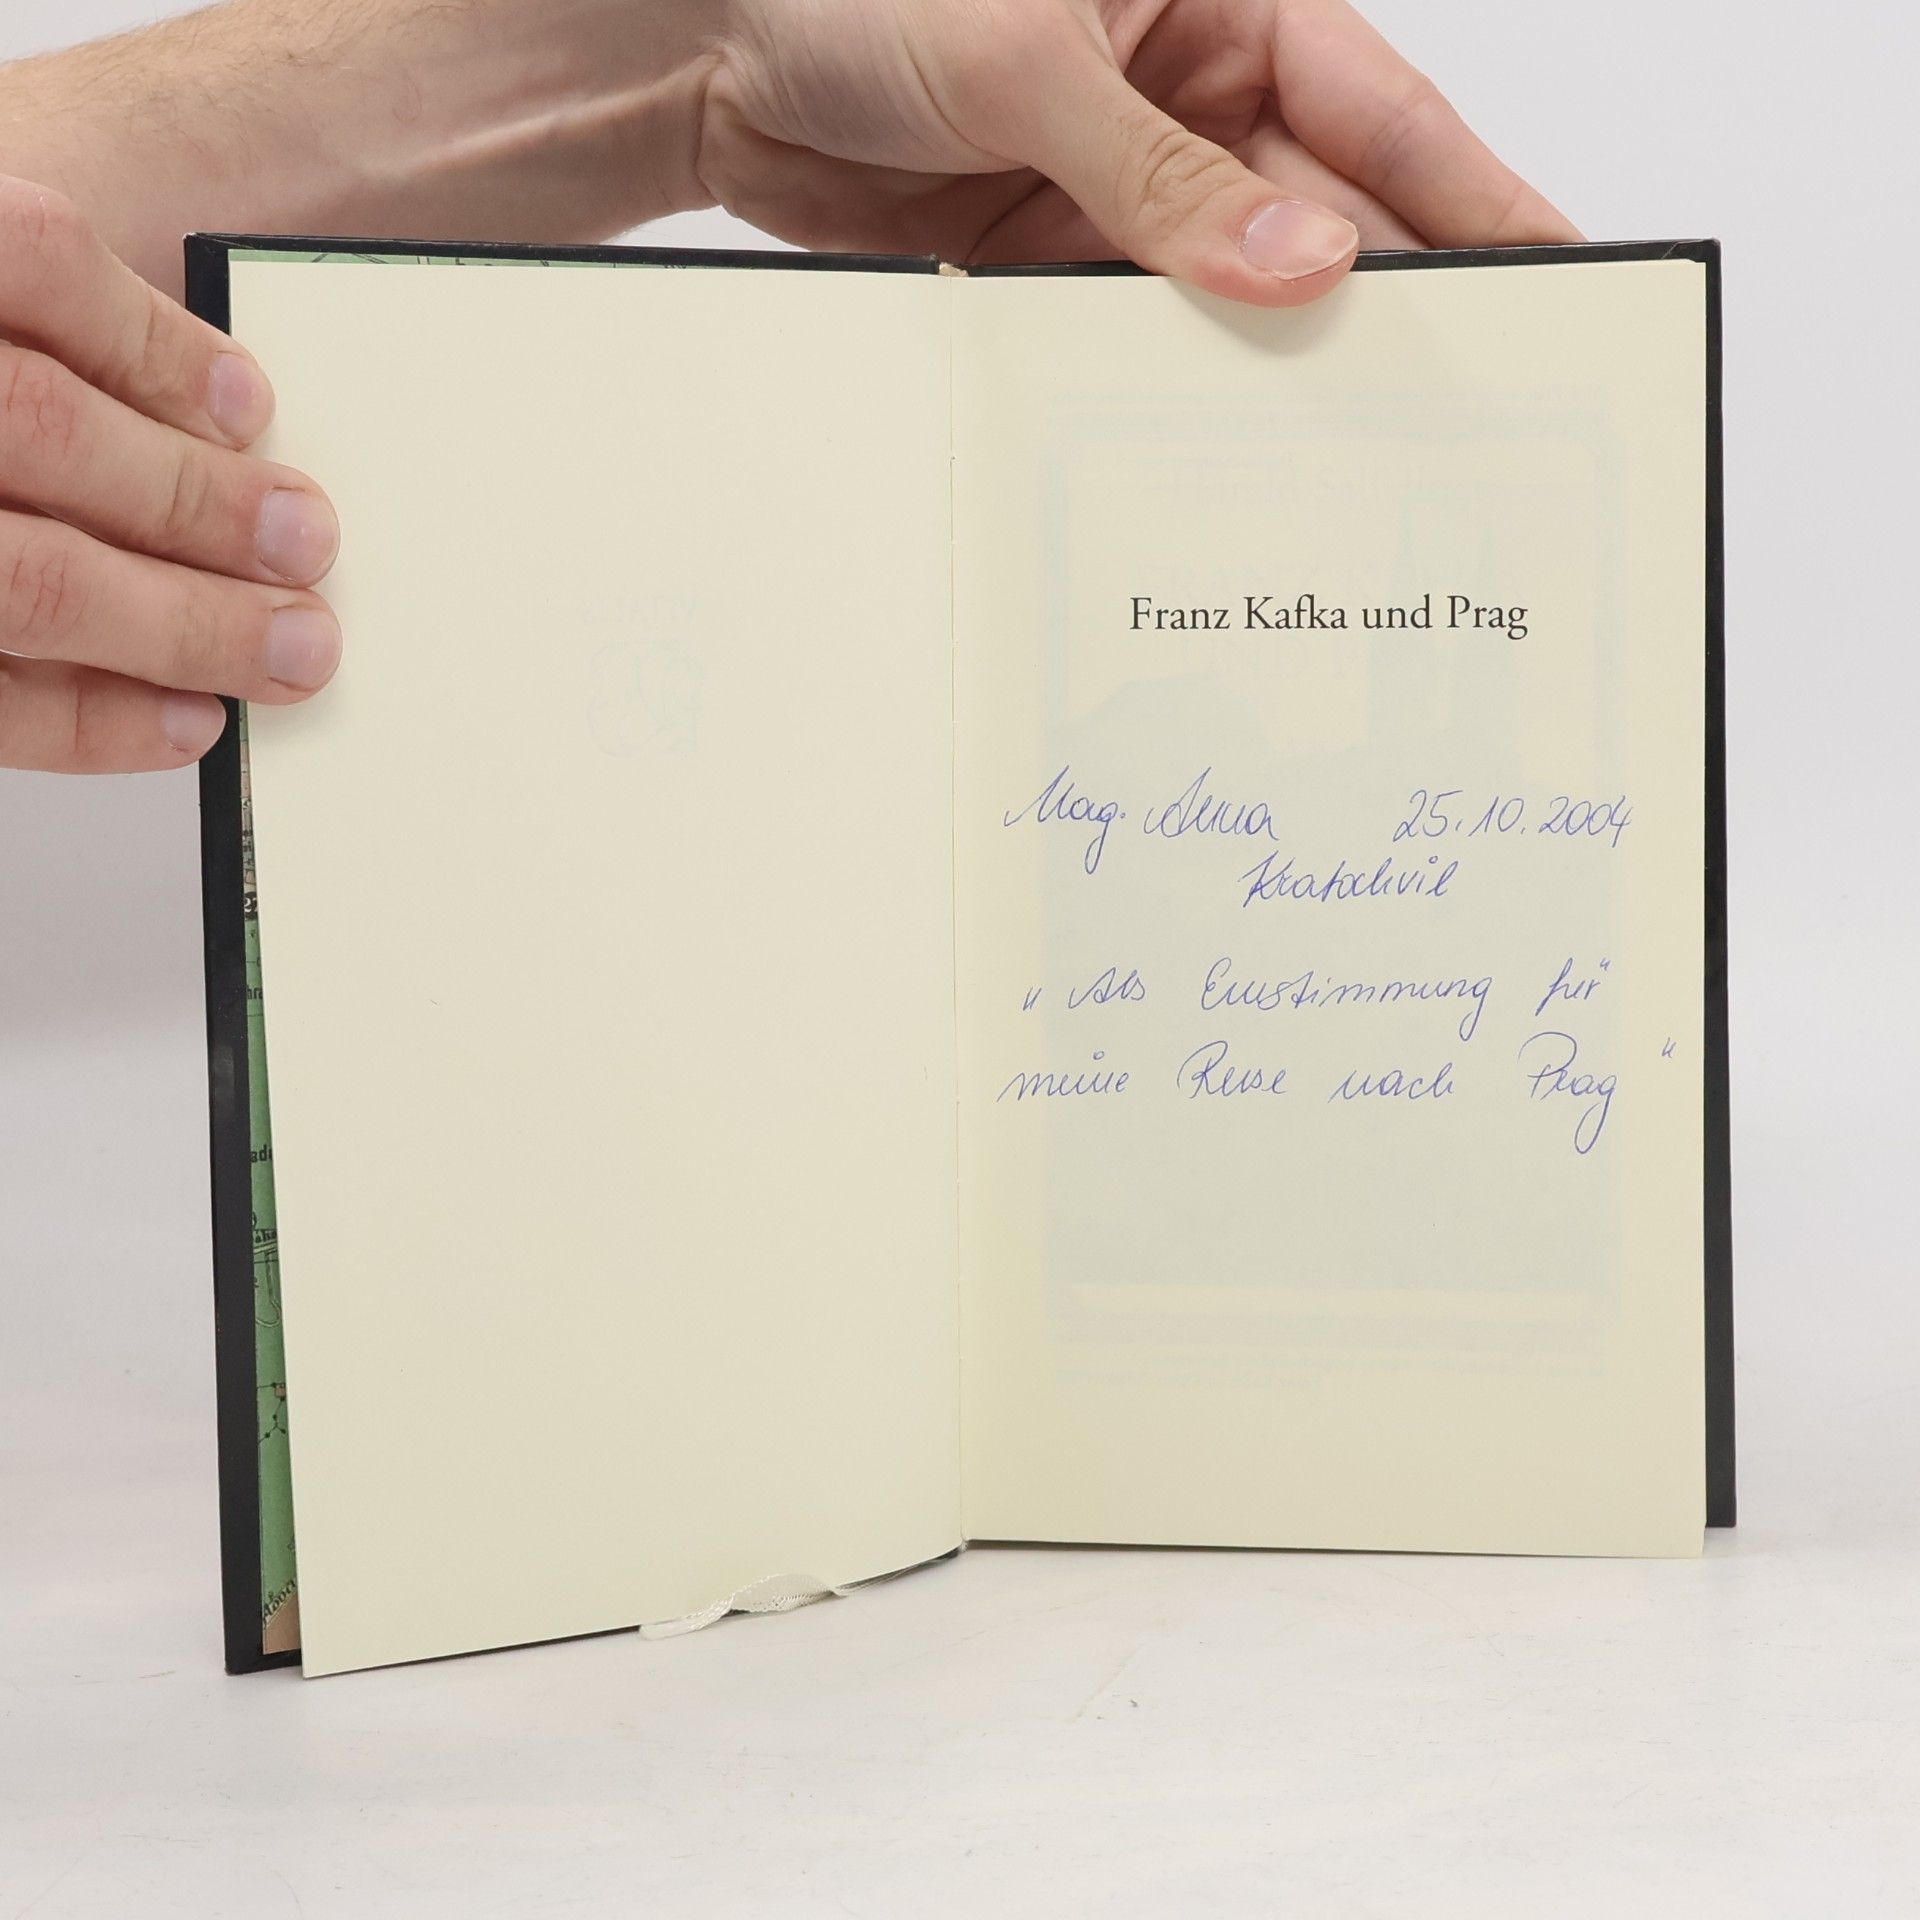 Franz Kafka und Prag
Mag. Anna 25.10.2004
Kratochvil
" Als Einstimmung für
meine Reise nach Prag "